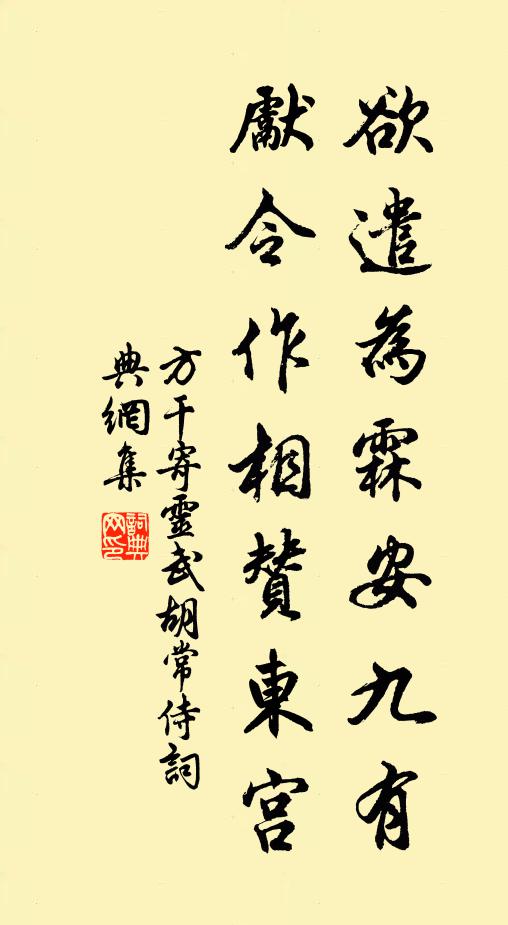 欲遣為霖安九有
獻令作相贊東宮
方干寄靈武胡常侍詞
典網集
詞典
网印